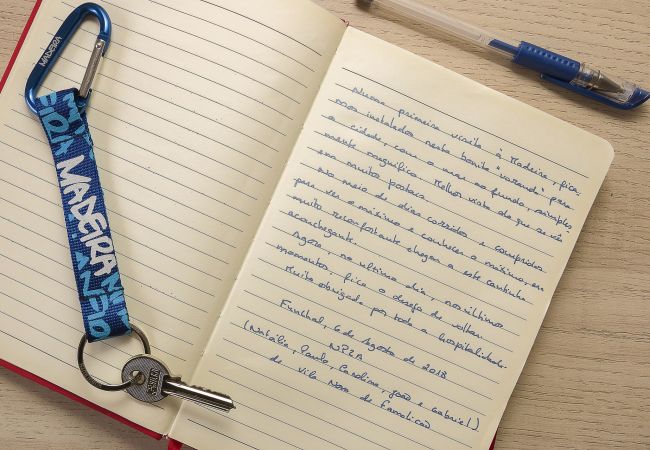 MADEIRA
MADEIRA
Numa primeira visita à Madeira, fica-
mos instalados nesta bonita "varanda" para
a cidade, com o mar ao fundo, simples-
mente magnífica. Melhor vista do que se vê
em muitos postais.
No meio de dias corridos e compridos
para ver o máximo e conhecer o máximo, era
muito reconfortante chegar a este cantinho
aconchegante.
Agora, no último dia, nos últimos
momentos, fica o desejo de voltar.
Muito obrigada por toda a hospitalidade.
Funchal, 6 de Agosto de 2018
(Natália, Paulo, Carolina, João e Gabriel)
de Vila Nova de Famalicão